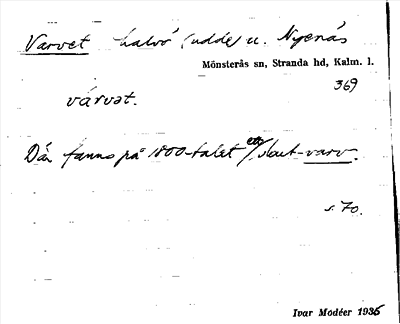 Varvet halvö (udde) u. Nyenäs
Mönsterås sn, Stranda hd, Kalm. l.
369
várvət.
Där fanns på 1800-talet ett slaut-varv.
s. 70.
Ivar Modéer 1935